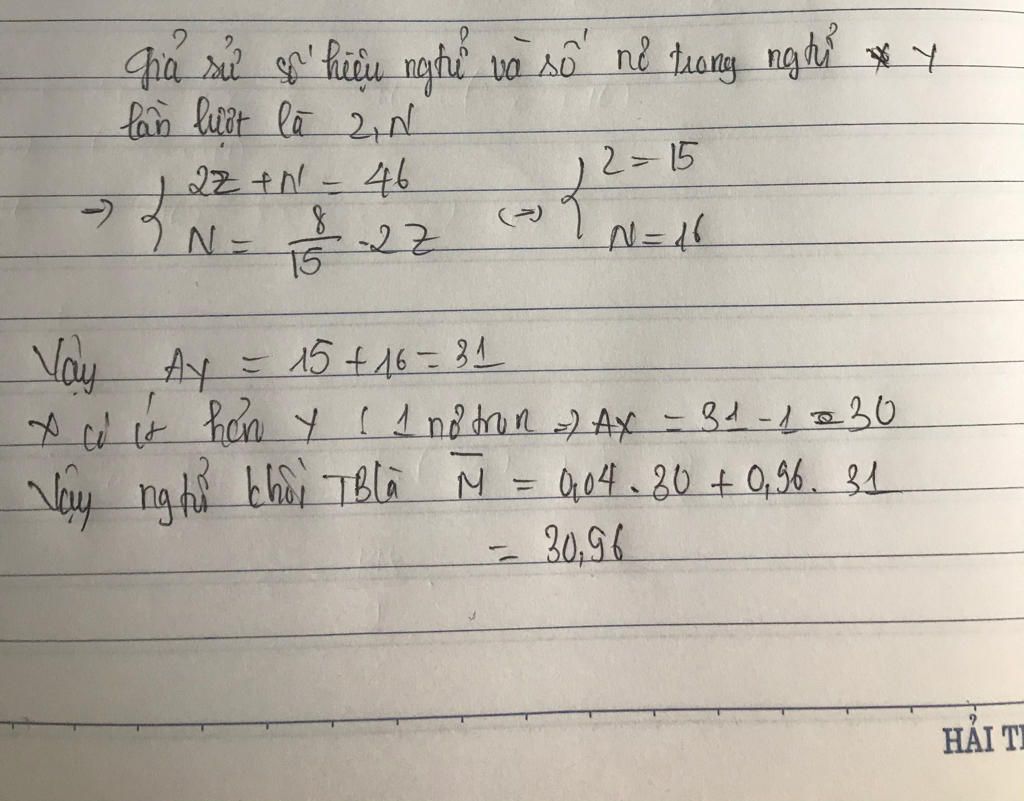 Giả sử số hiệu nghtử và số nơ trong nghtử Y
lần lượt là Z, N
=> { 2Z + N = 46 (=> { Z = 15
N = 8/15 . 2Z N = 16
Vậy AY = 15 + 16 = 31
X có ít hơn Y ( 1 nơtron => AX = 31 - 1 = 30
Vậy nghtử khối TB là M̅ = 0,04 . 30 + 0,96 . 31
= 30,96
HẢI T